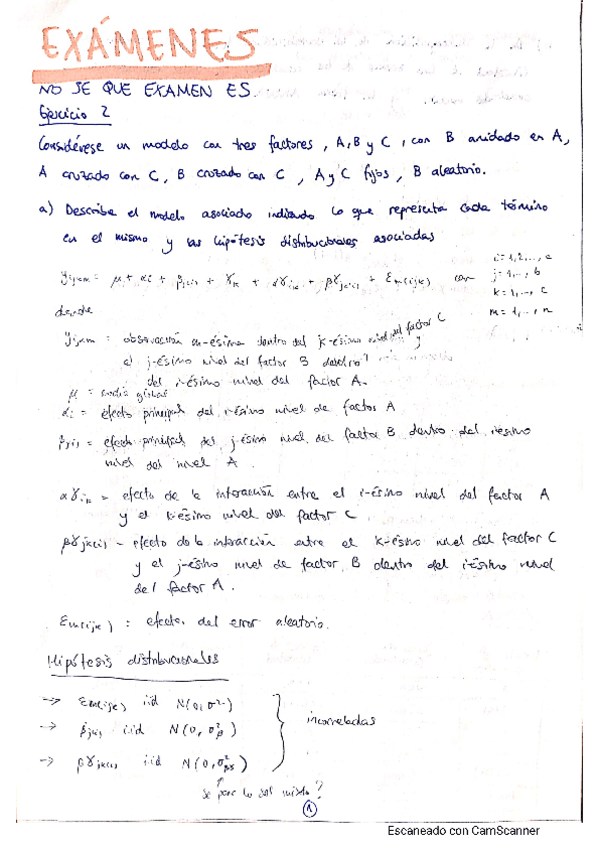 EXÁMENES
NO SE QUE EXAMEN ES.
Ejercicio 2
Considérese un modelo con tres factores, A, B y C, con B anidado en A,
A cruzado con C, B cruzado con C, A y C fijos, B aleatorio.
a) Describa el modelo asociado indicando lo que representa cada término
en el mismo y las hipótesis distribucionales asociadas
i = 1,2,..., a
y_ijkm = μ + αi + β_j(i) + γ_k + αγ_ik + βγ_jk(i) + ε_m(ijk) con
j = 1,..., b
k = 1,..., c
m = 1,..., n
donde
y_ijkm : observación m-ésima dentro del k-ésimo nivel del factor C y
el j-ésimo nivel del factor B dentro
del i-ésimo nivel del factor A.
μ = media global
αi = efecto principal del i-ésimo nivel de factor A
β_j(i) = efecto principal del j-ésimo nivel del factor B dentro del iesimo
nivel del nivel A.
αγ_ik = efecto de la interacción entre el i-ésimo nivel del factor A
y el k-ésimo nivel del factor C
βγ_jk(i) - efecto de la interacción entre el k-ésimo nivel del factor C
y el j-ésimo nivel de factor B dentro del i-ésimo nivel
del factor A.
ε_m(ijk) : efecto del error aleatorio.
Hipótesis distribucionales
→ ε_m(ijk) iid N(0, σ²)
→ β_j(i) iid N(0, σ²_β)
incorreladas
→ βγ_jk(i) iid N(0, σ²_βγ)
se pone lo del mixto?
1
Escaneado con CamScanner